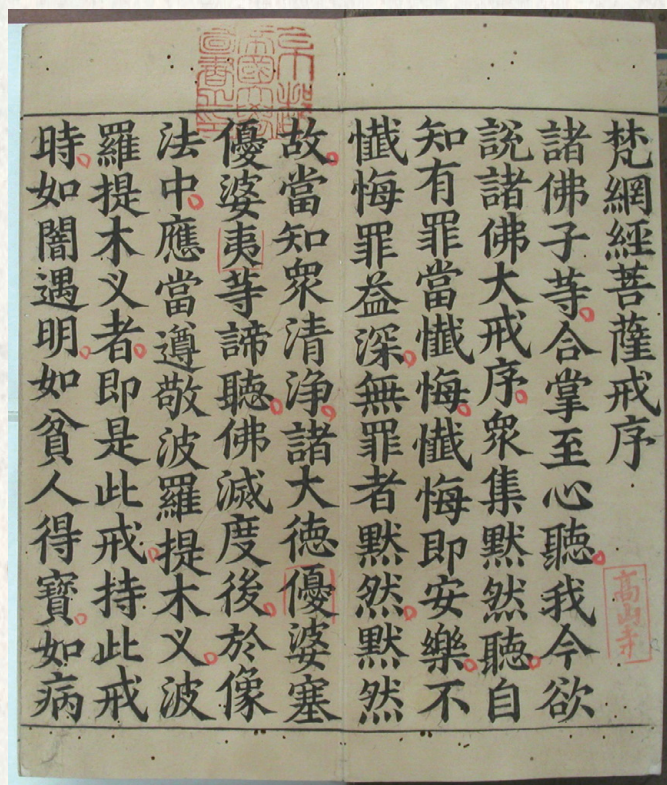 梵網經菩薩戒序
諸佛子等合掌至心聽我今欲
說諸佛大戒序眾集黙然聽自
知有罪當懺悔懺悔即安樂不
懺悔罪益深無罪者黙然黙然
故當知眾清浄諸大德優婆塞
優婆夷等諦聽佛滅度後於像
法中應當遵敬波羅提木义波
羅提木义者即是此戒持此戒
時如闇遇明如貧人得寶如病
高山寺